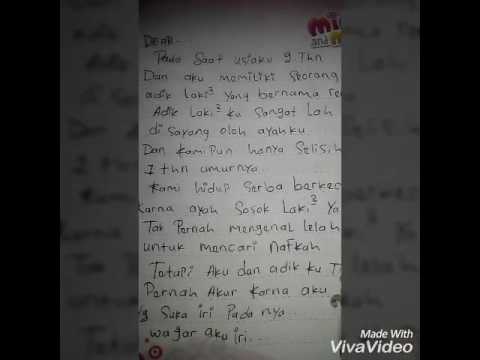 DEAR...
Mi
and
Pada Saat usiaku 9 Thn
Dan aku memiliki seorang
adik laki² yang bernama
Adik laki² ku sangat lah
di sayang oleh ayahku
Dan kamipun hanya
1 thn umurnya...
kami hidup serba
karna ayah sosok laki²
Tak Pernah mengenal lelah
untuk mencari nafkah
Tetapi Aku dan adik ku
Pernah Akur karna aku
suka iri Pada nya...
wajar aku iri...
Made With
VivaVideo